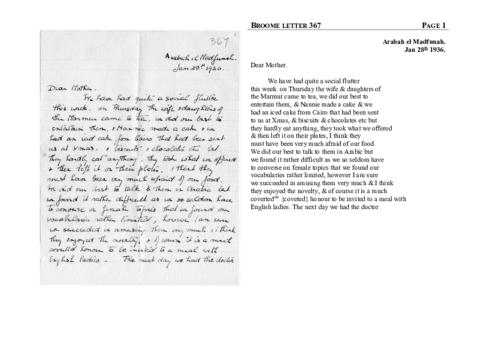 367
Arabah el Madfunah.
Jan 28th 1936.
Dear Mother.
We have had quite a social flutter
this week. on Thursday the wife & daughters of
the Marmur came to tea, we did our best to
entertain them, & Nannie made a cake & we
had an iced cake from Cairo that had been sent
us at Xmas. & biscuits & chocolates etc but
they hardly eat anything, they took what we offered
& then left it on their plates, I think they
must have been very much afraid of our food.
We did our best to talk to them in Arabic but
we found it rather difficult as we so seldom have
to converse on female topics that we found our
vocabularies rather limited, however I am sure
we succeeded in amusing them very much & I think
they enjoyed the novelty, & of course it is a much
coverted honour to be invited to a meal with
English ladies. The next day we had the doctor
BROOME LETTER 367 PAGE 1
Arabah el Madfunah.
Jan 28th 1936.
Dear Mother.
We have had quite a social flutter
this week on Thursday the wife & daughters of
the Marmur came to tea, we did our best to
entertain them, & Nannie made a cake & we
had an iced cake from Cairo that had been sent
to us at Xmas, & biscuits & chocolates etc but
they hardly eat anything, they took what we offered
& then left it on their plates, I think they
must have been very much afraid of our food.
We did our best to talk to them in Arabic but
we found it rather difficult as we so seldom have
to converse on female topics that we found our
vocabularies rather limited, however I am sure
we succeeded in amusing them very much & I think
they enjoyed the novelty, & of course it is a much
coverted [coveted] honour to be invited to a meal with
English ladies. The next day we had the doctor